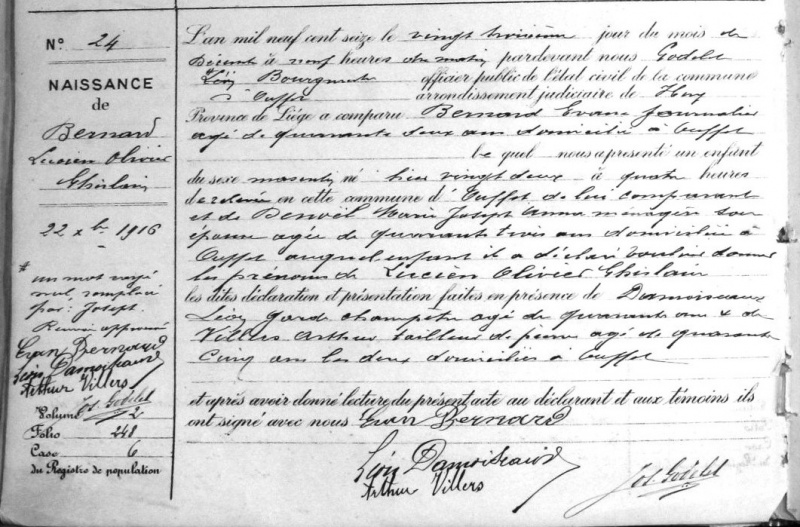 N° 24
NAISSANCE
de
Bernard
Lucien Olivier
Ghislain
22 xbre 1916
* un mot rayé
nul, remplacé
par: Joseph.
Renvoi approuvé
Evan Bernard
Léon Damoiseaux
Arthur Villers
Jos. Godelet
Volume 2
Folio 248
Case 6
du Registre de population
L'an mil neuf cent seize le vingt troisième jour du mois de
Décembre à neuf heures du matin pardevant nous Godelet
Bourgmestre officier public de l'état civil de la commune
d'Ouffet arrondissement judiciaire de Huy
Province de Liége a comparu Bernard Evan journalier
agé de quarante deux ans domicilié à Ouffet
lequel nous a présenté un enfant
du sexe masculin né hier vingt deux à quatre heures
de relevée en cette commune d'Ouffet de lui comparant
et de Benoît Marie Joseph Anna ménagère son
épouse agée de quarante trois ans domiciliée à
Ouffet auquel enfant il a déclaré vouloir donner
les prénoms de Lucien Olivier Ghislain
les dites déclaration et présentation faites en présence de Damoiseaux
Léon garde champêtre agé de quarante ans & de
Villers Arthur tailleur de pierre agé de quarante
cinq ans les deux domiciliés à Ouffet
et après avoir donné lecture du présent acte au déclarant et aux témoins ils
ont signé avec nous Evan Bernard
Léon Damoiseaux
Arthur Villers
Jos. Godelet